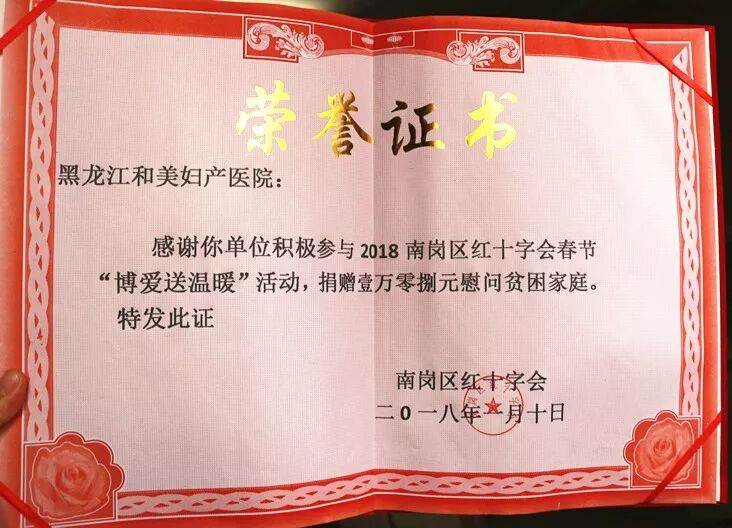 荣誉证书
黑龙江和美妇产医院：
感谢你单位积极参与2018南岗区红十字会春节
“博爱送温暖”活动，捐赠壹万零捌元慰问贫困家庭。
特发此证
南岗区红十字会
二0一八年一月十日